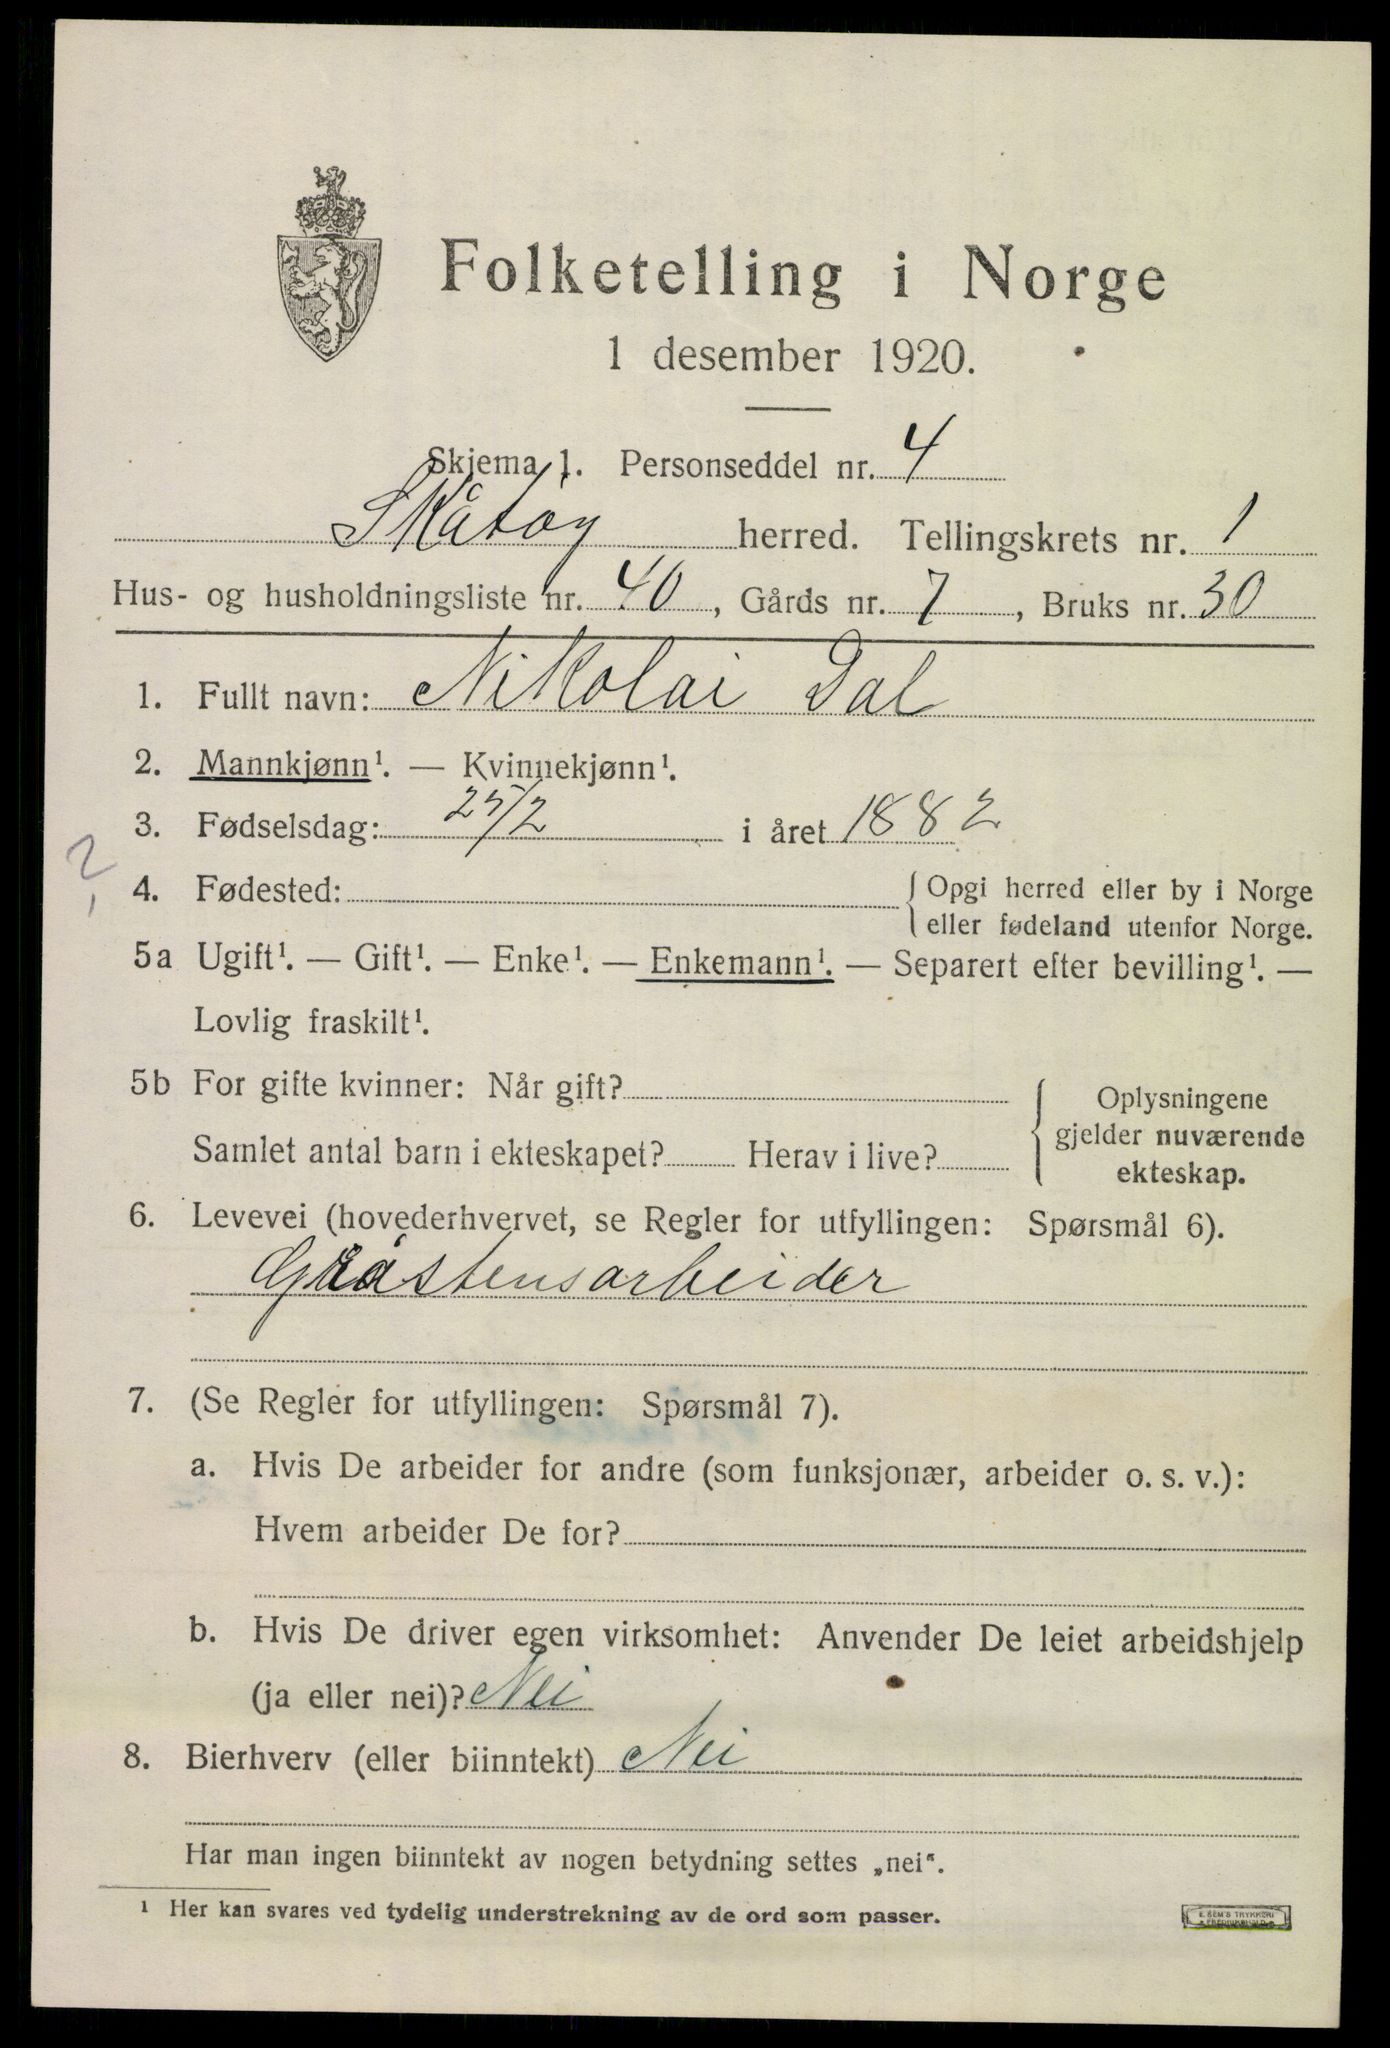 Folketelling i Norge
1 desember 1920.
Skjema 1. Personseddel nr. 4
Skåtøy herred. Tellingskrets nr. 1
Hus- og husholdningsliste nr. 40, Gårds nr. 7, Bruks nr. 30
1. Fullt navn: Nikolai Dal
2. Mannkjønn¹. — Kvinnekjønn¹.
3. Fødselsdag: 25/2 i året 1882
?
4. Fødested: { Opgi herred eller by i Norge
eller fødeland utenfor Norge.
5a Ugift¹. — Gift¹. — Enke¹. — Enkemann¹. — Separert efter bevilling¹. —
Lovlig fraskilt¹.
5b For gifte kvinner: Når gift?
Samlet antal barn i ekteskapet? Herav i live?
{ Oplysningene
gjelder nuværende
ekteskap.
6. Levevei (hovederhvervet, se Regler for utfyllingen: Spørsmål 6).
Gråstensarbeider
7. (Se Regler for utfyllingen: Spørsmål 7).
a. Hvis De arbeider for andre (som funksjonær, arbeider o. s. v.):
Hvem arbeider De for?
b. Hvis De driver egen virksomhet: Anvender De leiet arbeidshjelp
(ja eller nei)? Nei
8. Bierhverv (eller biinntekt) Nei
Har man ingen biinntekt av nogen betydning settes „nei".
¹ Her kan svares ved tydelig understrekning av de ord som passer.
E. SEM'S TRYKKERI
FREDRIKSHALD